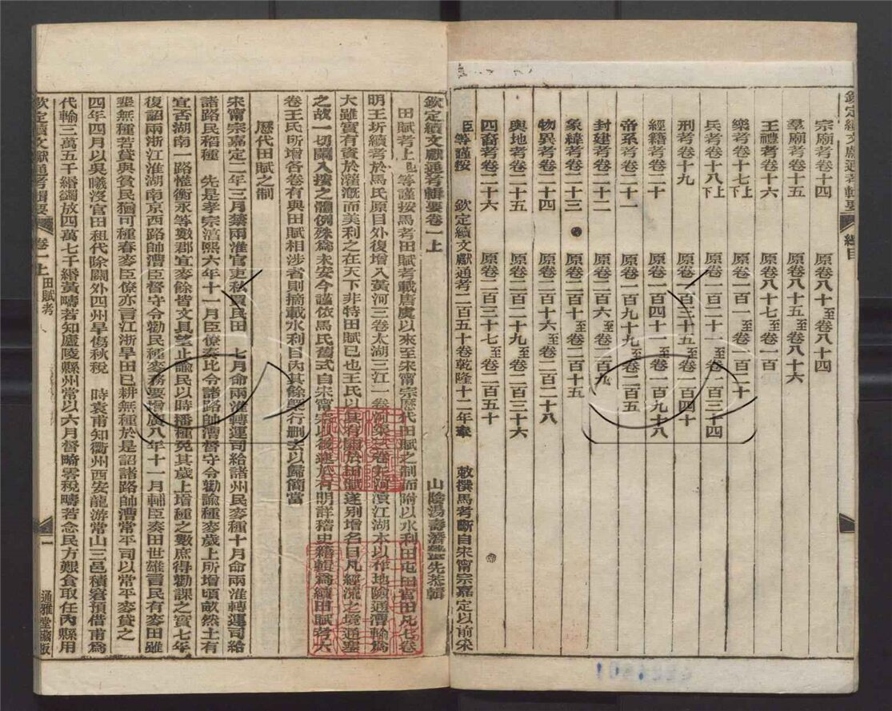 欽定續文獻通考輯要
總目
宗廟考卷十四 原卷八十至卷八十四
羣廟考卷十五 原卷八十五至卷八十六
王禮考卷十六 原卷八十七至卷一百
樂考卷十七上下 原卷一百一至卷一百二十
兵考卷十八上下 原卷一百二十一至卷一百三十四
刑考卷十九 原卷一百三十五至卷一百四十
經籍考卷二十 原卷一百四十一至卷一百九十八
帝系考卷二十一 原卷一百九十九至卷二百五
封建考卷二十二 原卷二百六至卷二百九
象緯考卷二十三 原卷二百十至卷二百十五
物異考卷二十四 原卷二百十六至卷二百二十八
輿地考卷二十五 原卷二百二十九至卷二百三十六
四裔考卷二十六 原卷二百三十七至卷二百五十
臣等謹按 欽定續文獻通考二百五十卷乾隆十二年奉 敕撰馬考斷自宋甯宗嘉定以前采
欽定續文獻通考輯要卷一上
山陰湯壽潛蟄先甫輯
田賦考上臣等謹按馬考田賦考載唐虞以來至宋甯宗歷代田賦之制而附以水利田屯田官田凡七卷
明王圻續考於馬氏原目外復增入黃河三卷太湖三江一卷河渠三卷
大雖實有資於灌漑而美利之在天下非特田賦已也王氏以其有關於田賦遂別增名目凡經流之變通塞
之故一切闌入揆之體例殊爲未安今謹依馬氏舊式自宋甯宗以後迄於有明詳稽史籍輯爲續田賦考六
卷王氏所增各卷有與田賦相涉者則摘載水利目內其餘槩行刪去以歸簡當
歷代田賦之制
宋甯宗嘉定二年三月禁兩淮官吏私買民田 七月命兩淮轉運司給諸州民麥種十月命兩淮轉運司給
諸路民稻種 先是孝宗淳熙六年十一月臣僚奏比令諸路帥漕督守令勸諭種麥歲上所增頃畝然土有
宜否湖南一路惟衡永等數郡宜麥餘皆文具望止諭民以時播種免其歲上增種之數庶得勸課之實七年
復詔兩浙江淮湖南京西路帥漕臣督守令勸民種麥務要增廣八年十一月輔臣奏田世雄言民有麥田雖
墾無種若貸與貧民猶可種春麥臣僚亦言江浙旱田已耕無種於是詔諸路帥漕常平司以常平麥貸之
四年四月以吳曦沒官田租代除關外四州旱傷秋稅 時袁甫知衢州西安龍游常山三邑積窘預借甫爲
代輸三萬五千緡蠲放四萬七千緡黃疇若知廬陵縣州常以六月督畸零稅疇若念民方艱食取任內縣用
欽定續文獻通考輯要
卷一上 田賦考
一
通雅堂藏版